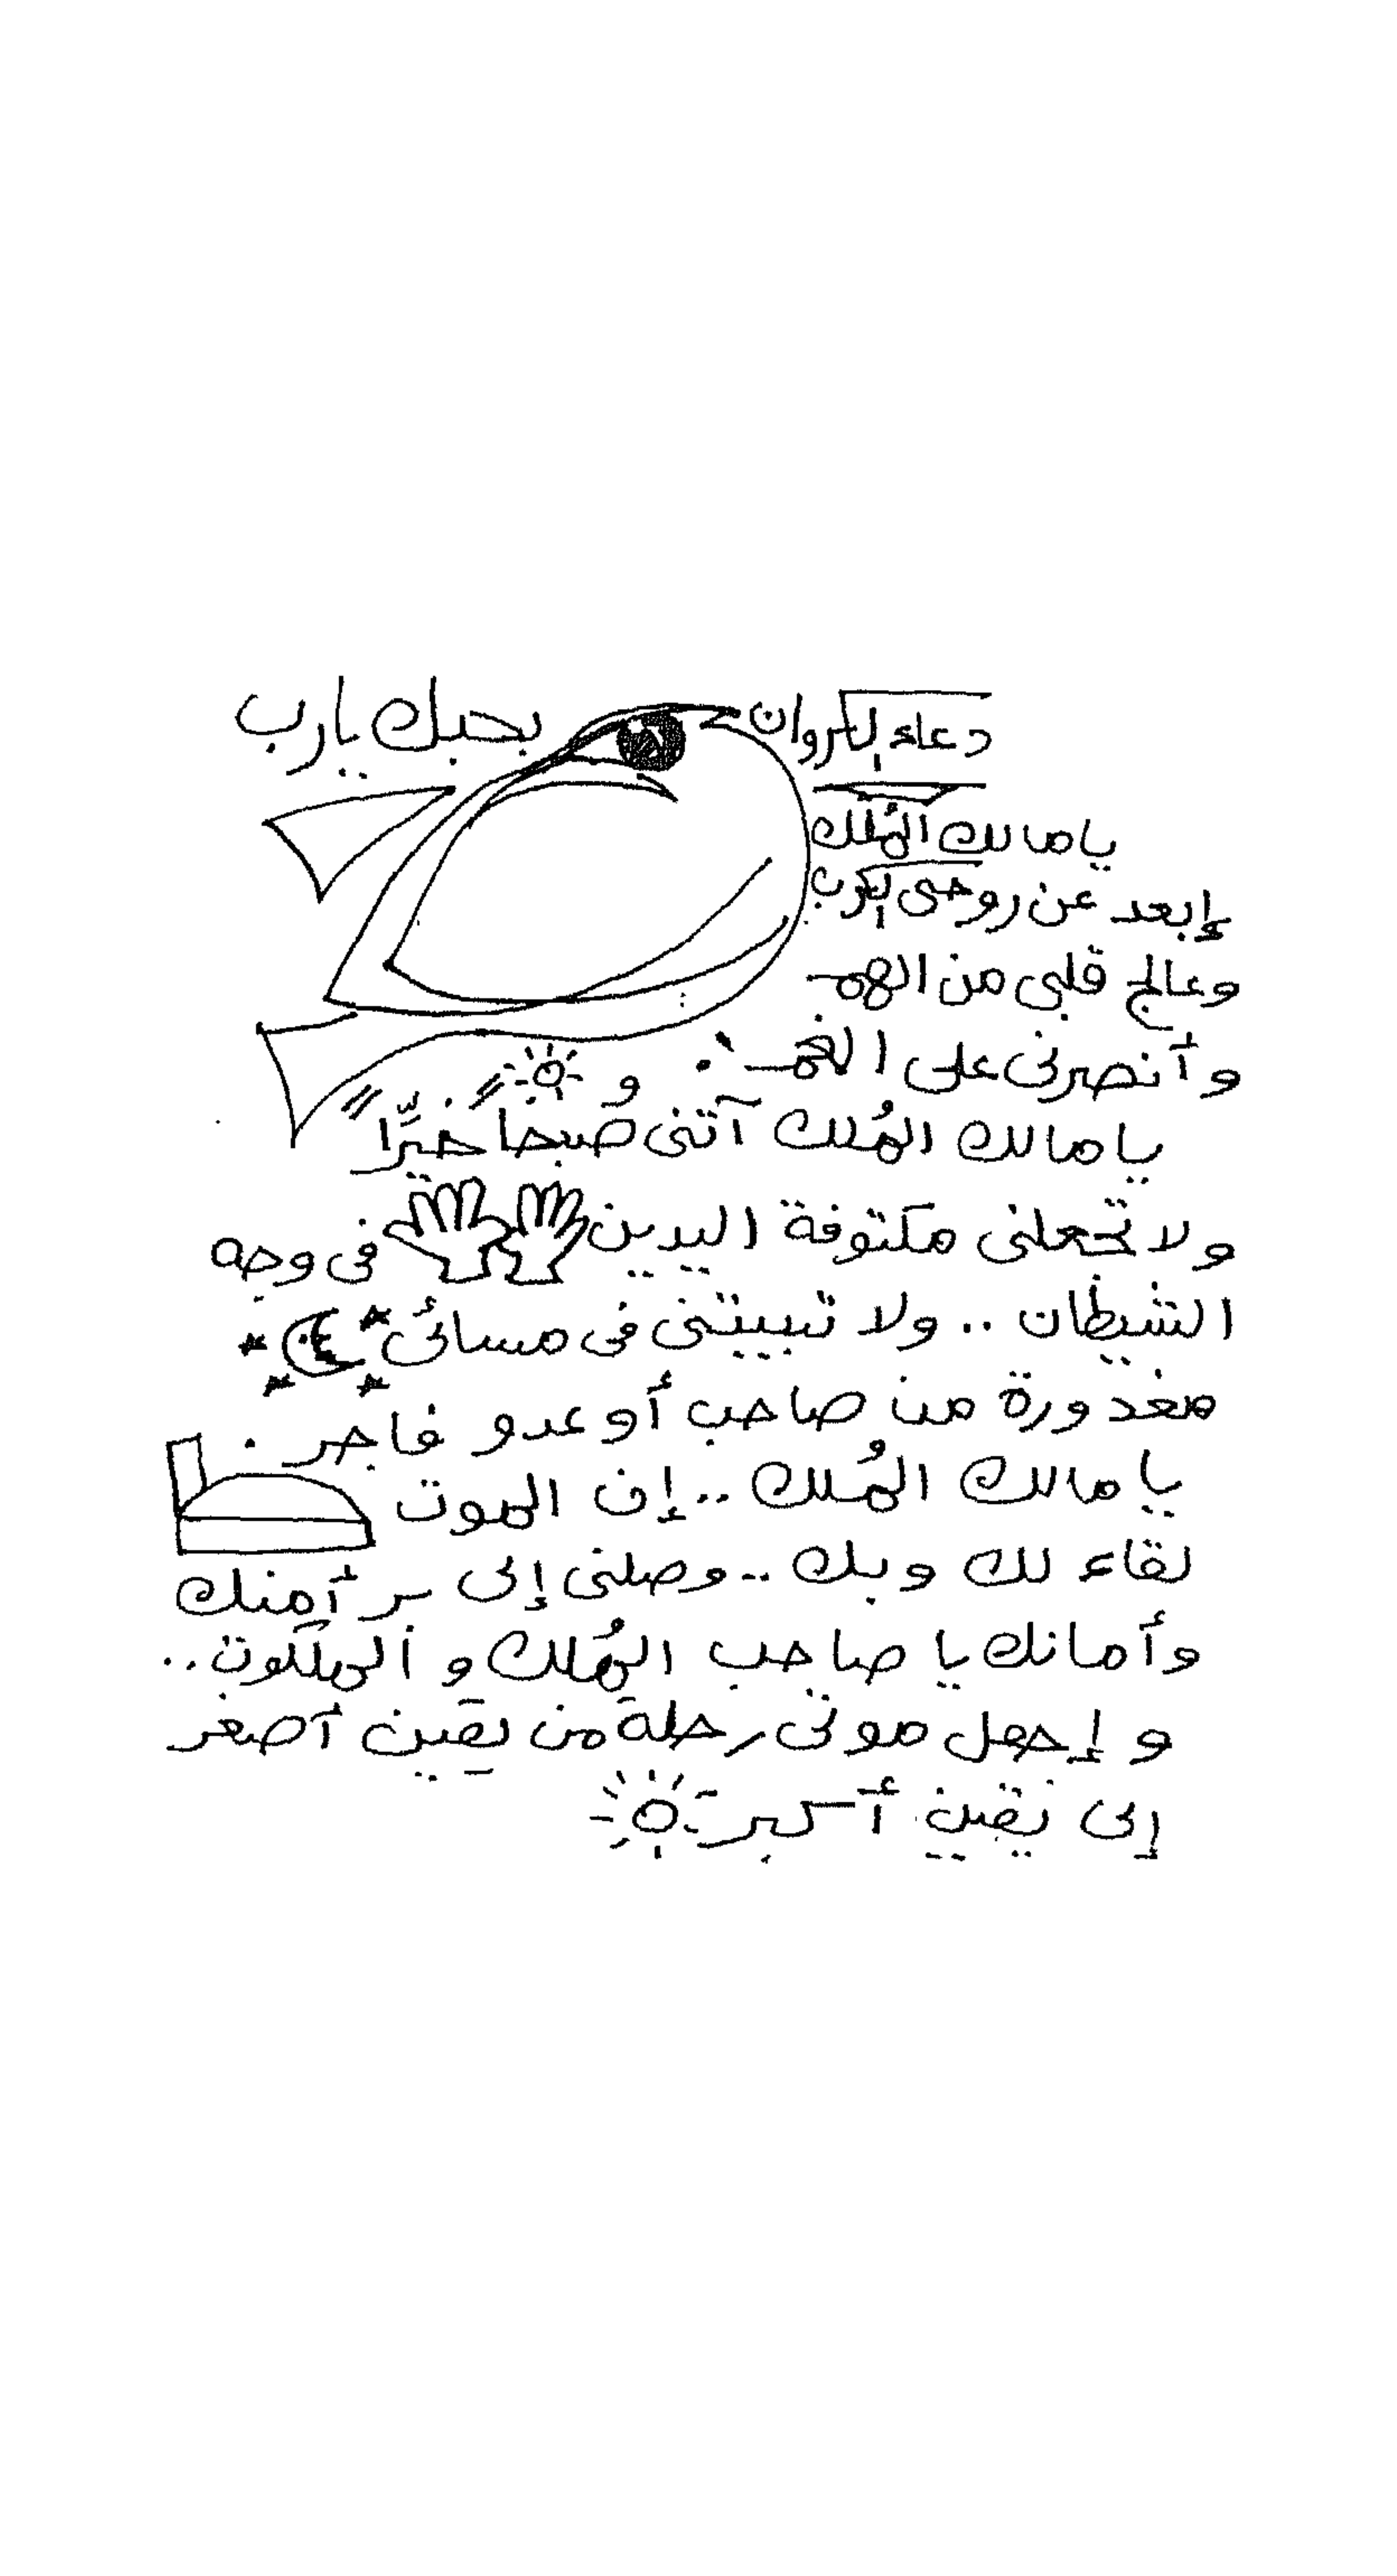 دعاء الكروان
بحبك يارب
يا مالك المُلك
إبعد عن روحى الكرب
وعالج قلبى من الهم
وأنصرنى على الغم. و
يا مالك المُلك آتنى صبحاً خيِّراً
ولا تجعلنى مكتوفة اليدين فى وجه
الشيطان .. ولا تبييتنى فى مسائى
مغدورة من صاحب أو عدو فاجر.
يا مالك المُلك .. إن الموت
لقاء لك وبك .. وصلنى إلى بر أمنك
وأمانك يا صاحب المُلك و الملكوت ..
و إجعل موتى رحلة من يقين أصغر
إلى يقين أكبر